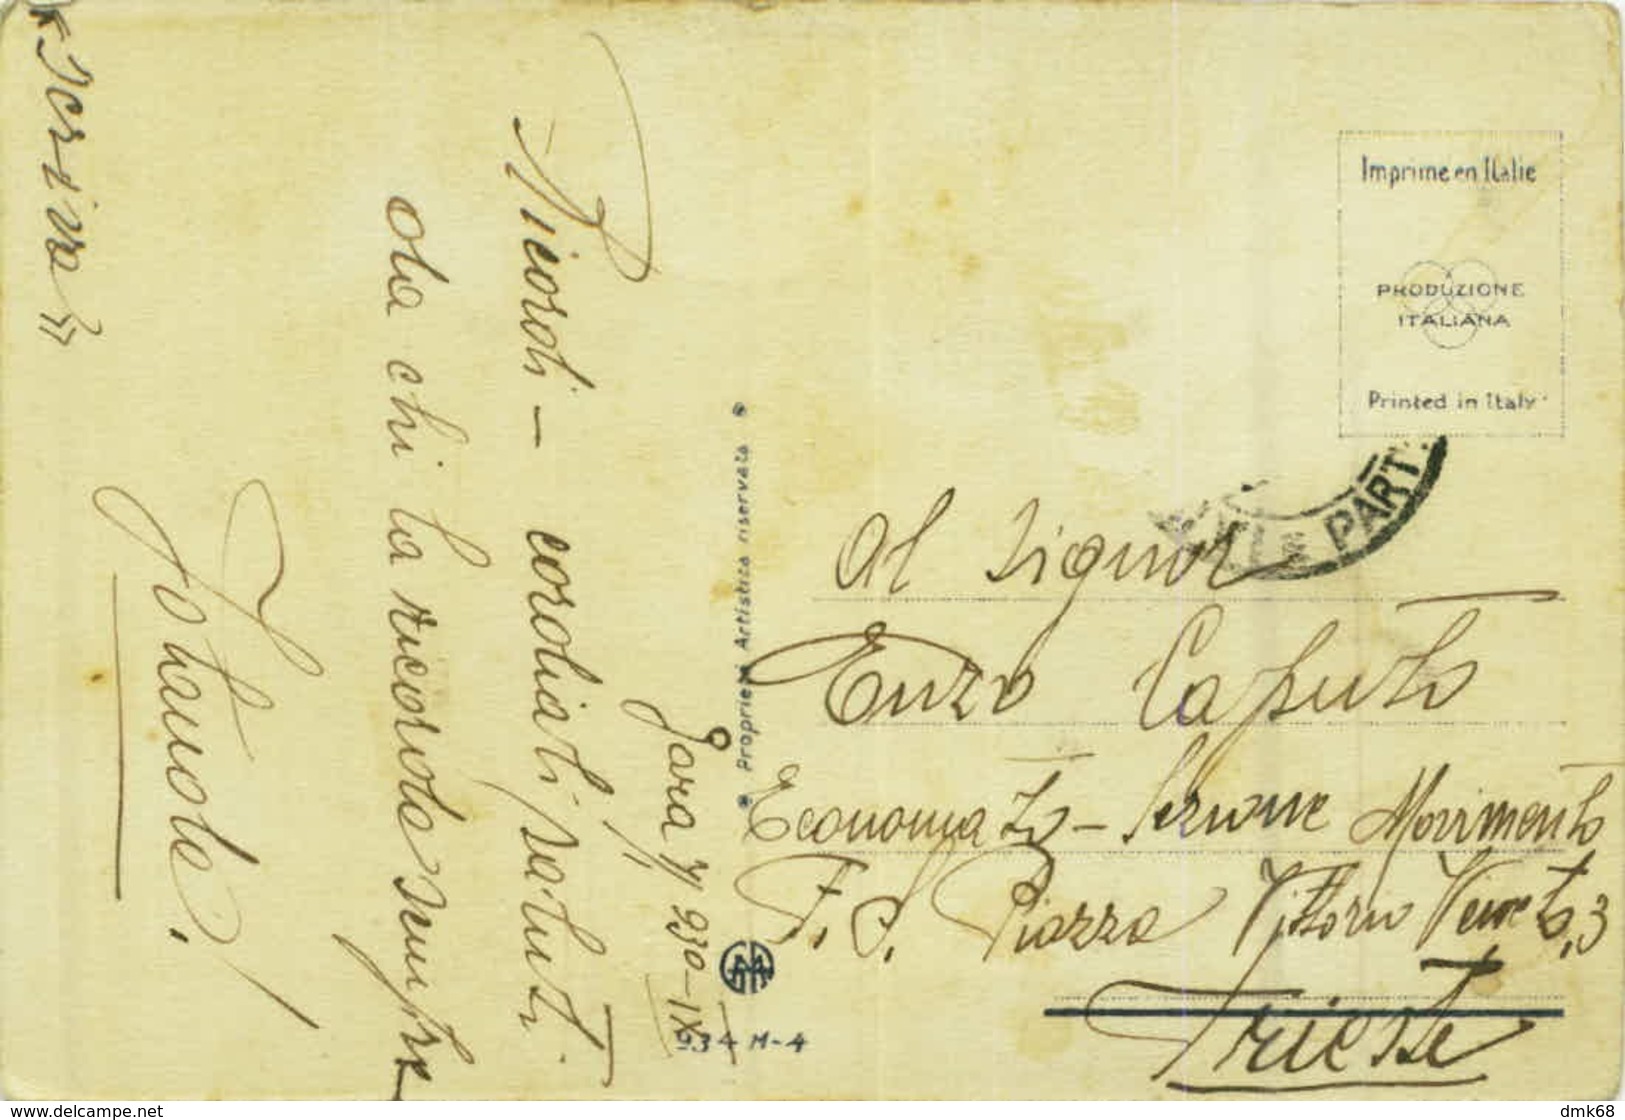 Ricordi - cordiali saluti
da chi la ricorda sempre
"Scriva"
Zara
930-IX
Proprietà Artistica riservata
934 M-4
Imprime en Italie
PRODUZIONE
ITALIANA
Printed in Italy
PART
Al Signor
Enzo Caputo
Economato - Sezione Movimento
F. S. Piazza Vittorio Veneto, 3
Trieste
delcampe.net
dmk68